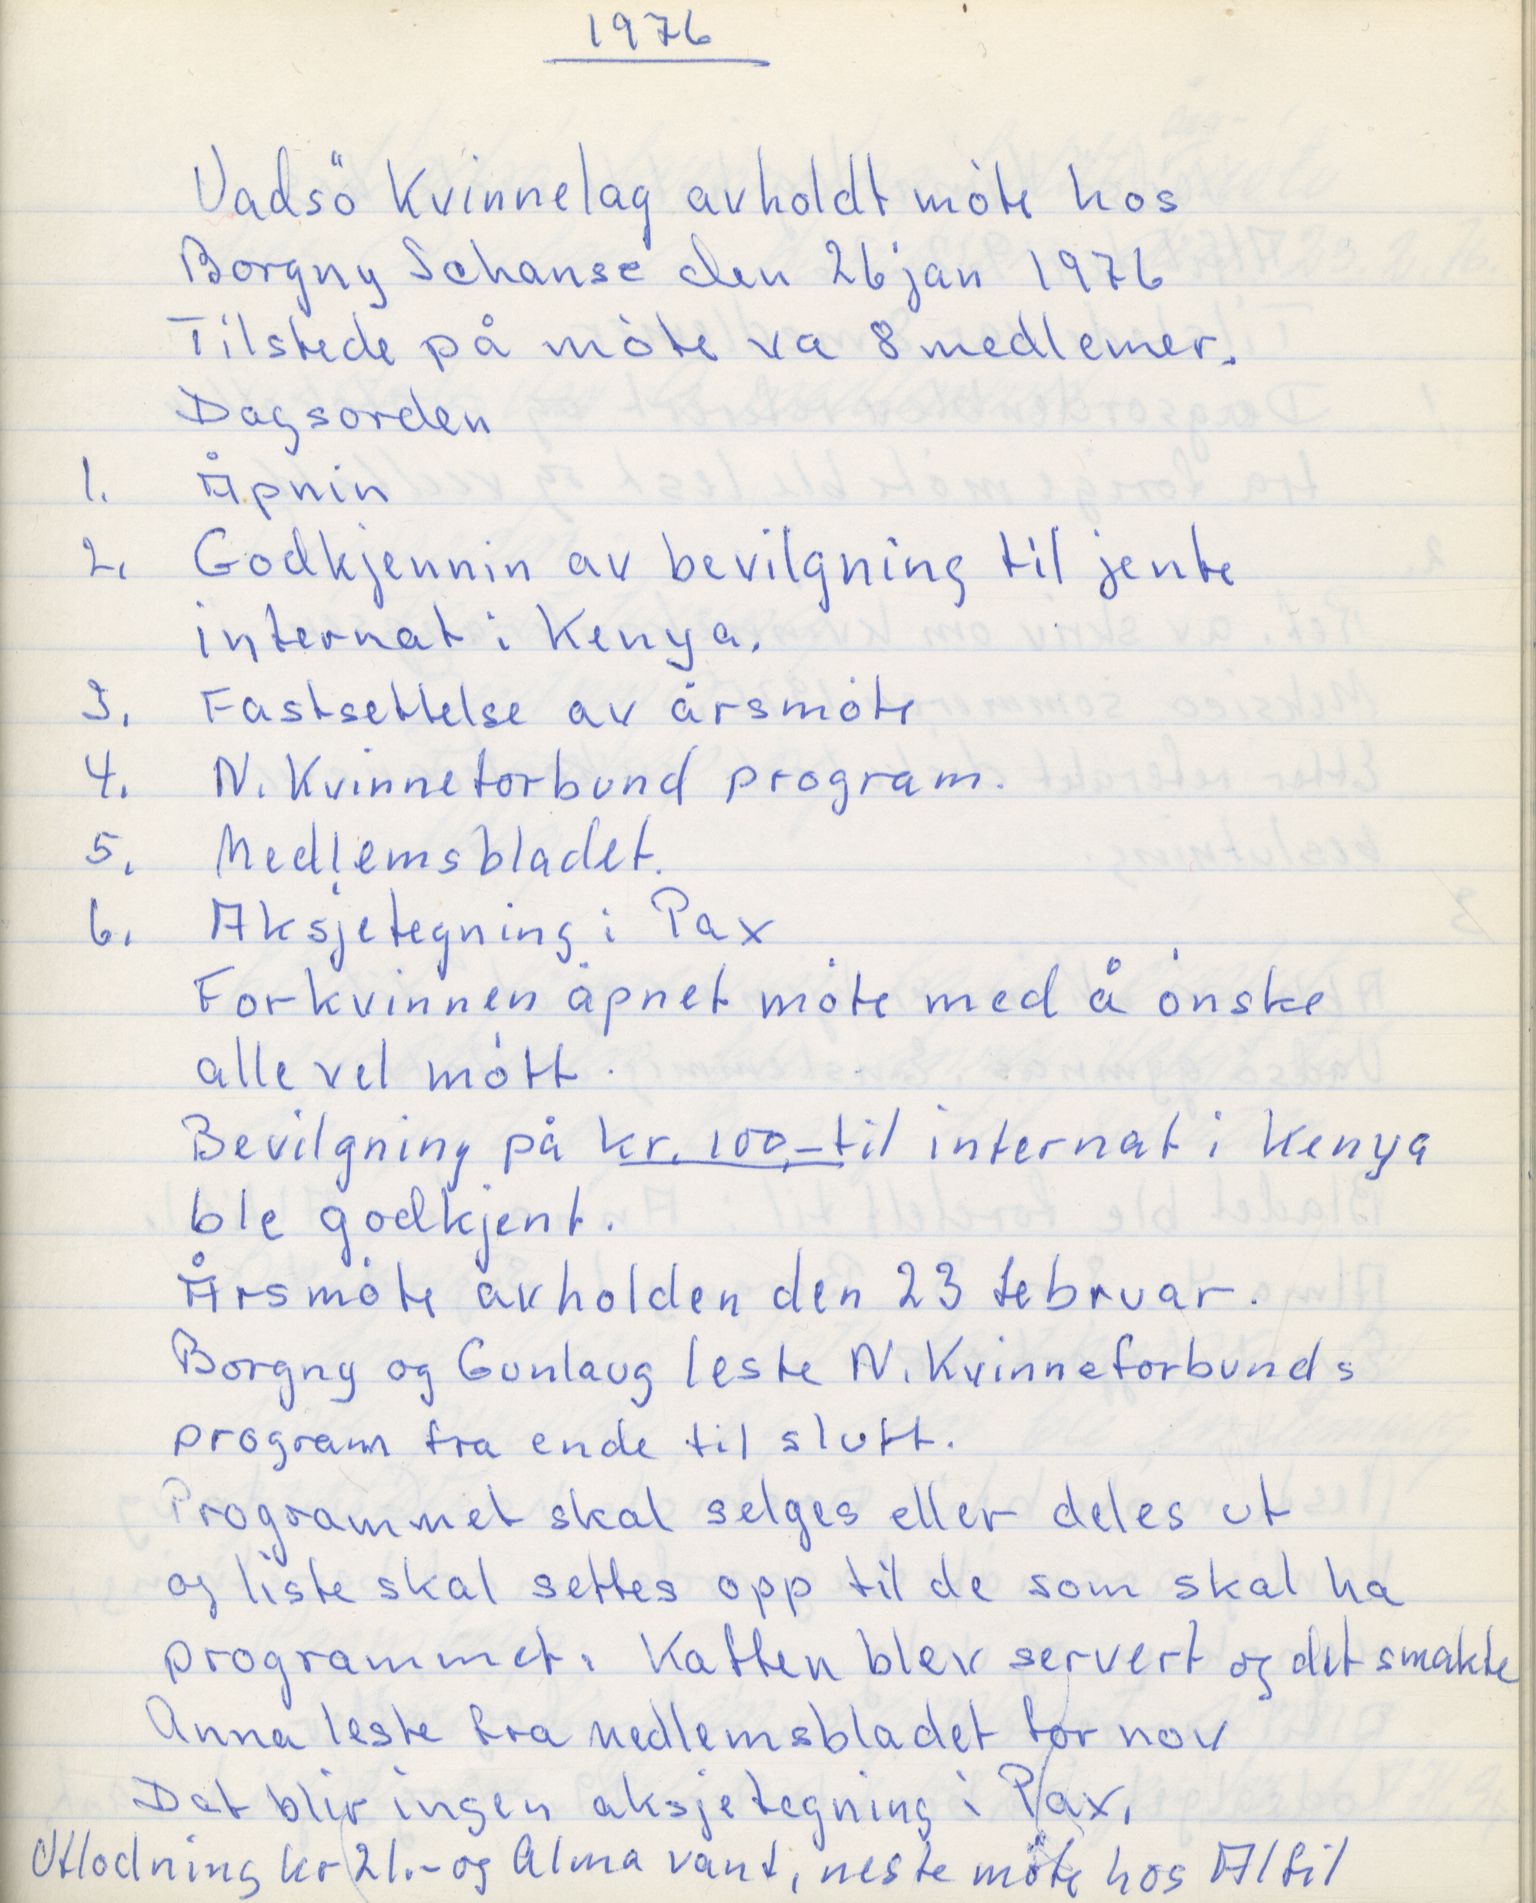 1976
Vadsö Kvinnelag avholdt möte hos
Borgny Schanse den 26 jan 1976
Tilstede på möte va 8 medlemer.
Dagsorden
1. Åpnin
2. Godkjennin av bevilgning til jente
internat i Kenya.
3. Fastsettelse av årsmöte
4. N. Kvinneforbund program.
5. Medlemsbladet.
6. Aksjetegning i Pax
Forkvinnen åpnet möte med å önske
alle vel mött.
Bevilgning på kr. 100,- til internat i Kenya
ble godkjent.
Årsmöte avholden den 23 februar.
Borgny og Gunlaug leste N. Kvinneforbunds
program fra ende til slutt.
Programmet skal selges eller deles ut
og liste skal settes opp til de som skal ha
programmet. Kaffen blev servert og det smakte
Anna leste fra medlemsbladet for nov
Det blir ingen aksjetegning i Pax.
Utlodning kr 21.- og Alma vant, neste möte hos Alfil